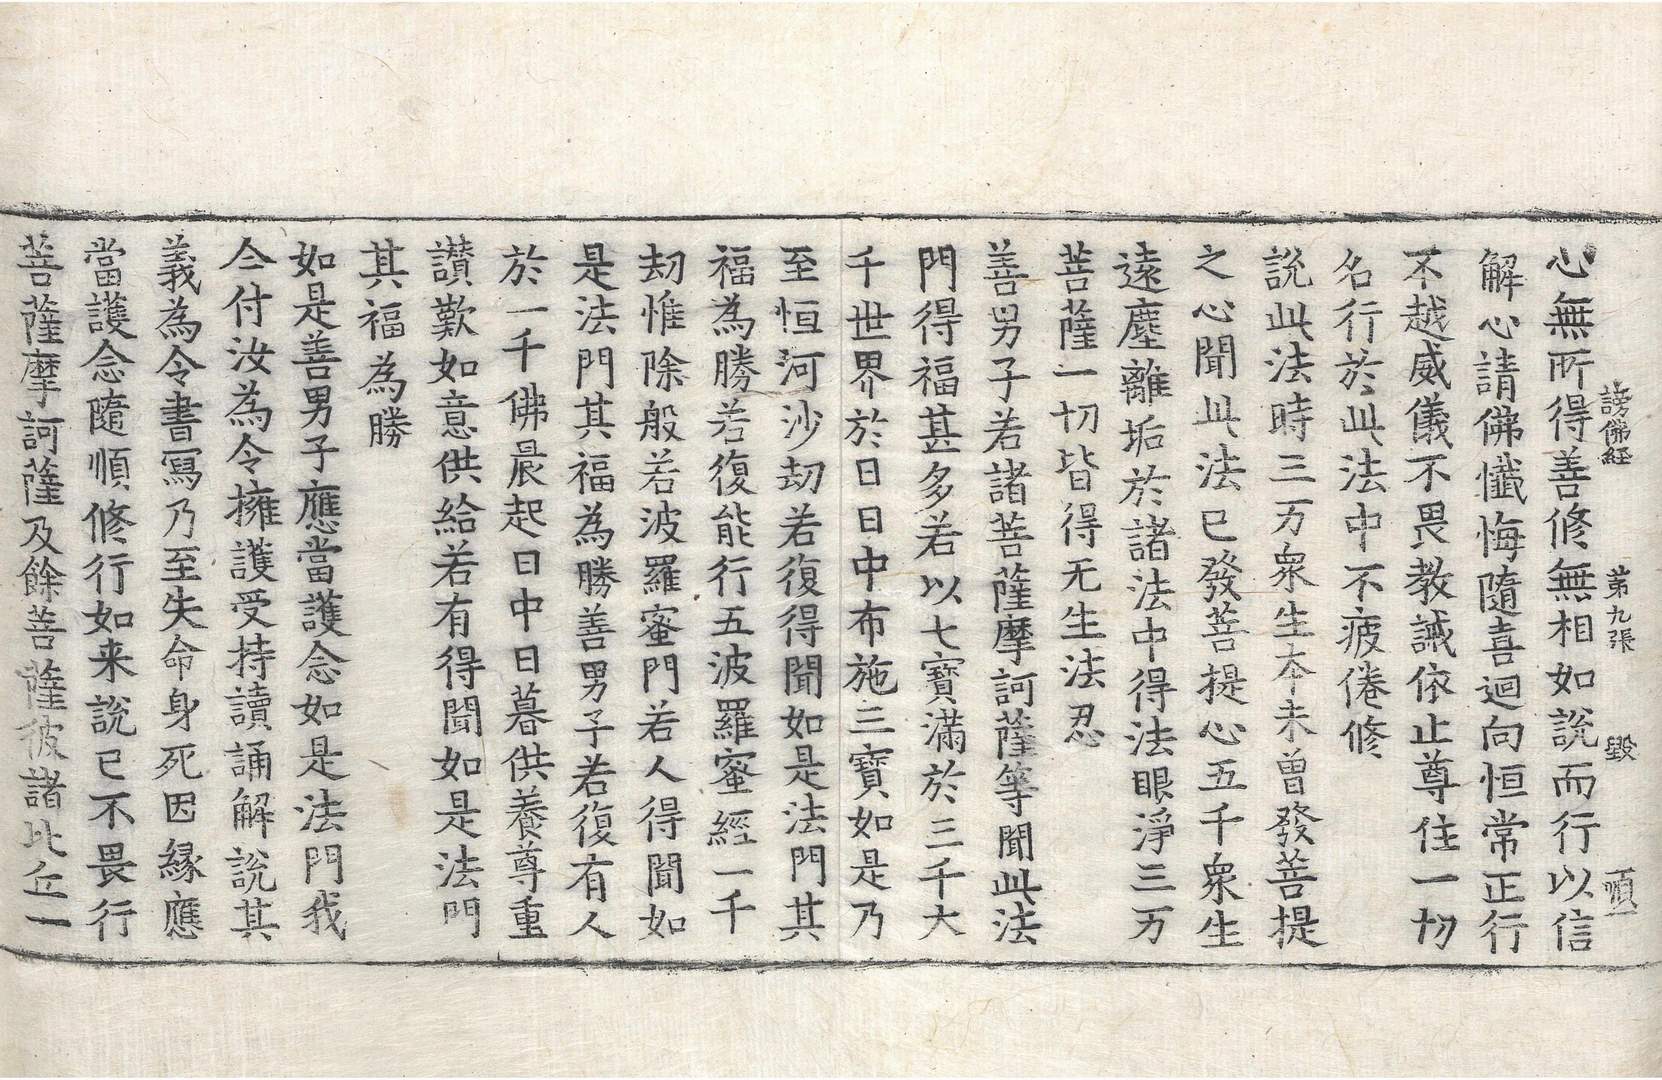 謗佛経 第九張 毀 頂一
心無所得善修無相如說而行以信
解心請佛懺悔隨喜迴向恒常正行
不越威儀不畏教誡依止尊住一切
名行於此法中不疲倦修
說此法時三万衆生本未曽發菩提
之心聞此法已發菩提心五千衆生
遠塵離垢於諸法中得法眼淨三万
菩薩一切皆得无生法忍
善男子若諸菩薩摩訶薩等聞此法
門得福甚多若以七寶滿於三千大
千世界於日日中布施三寶如是乃
至恒河沙劫若復得聞如是法門其
福為勝若復能行五波羅蜜經一千
劫惟除般若波羅蜜門若人得聞如
是法門其福為勝善男子若復有人
於一千佛晨起日中日暮供養尊重
讃歎如意供給若有得聞如是法門
其福為勝
如是善男子應當護念如是法門我
今付汝為令擁護受持讀誦解說其
義為令書寫乃至失命身死因縁應
當護念隨順修行如来說已不畏行
菩薩摩訶薩及餘菩薩彼諸比丘一